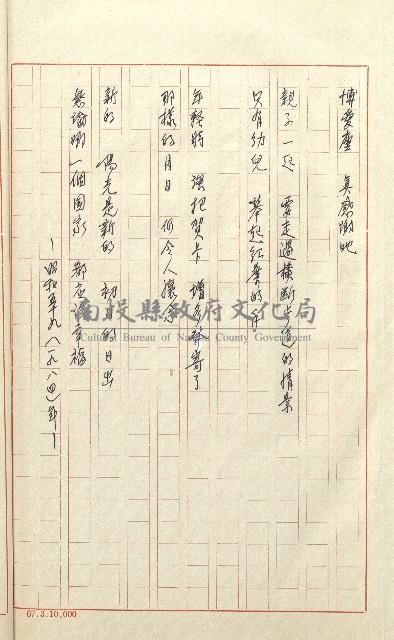 博愛座 真感謝她
親子一起 要走過橫斷步道的情景
只有幼兒 舉起紅葉的手
年輕時 強把賀卡 增多郵寄了
那樣的月日 何令人懷念
新的 陽光是新的 初日的日出
無論哪一個國家 都應該幸福
—昭和五十九(一九八四)年—
南投縣政府文化局
Cultural Bureau of Nantou County Government
67.3.10,000